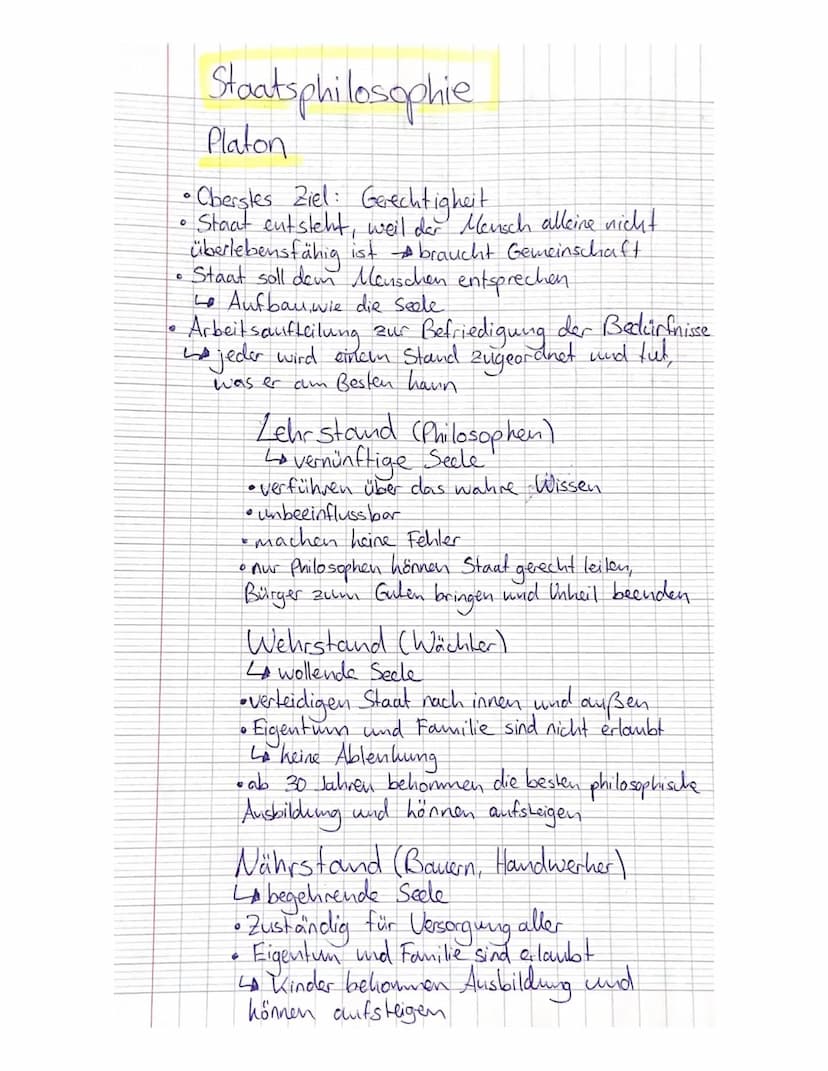 Staatsphilosophie
Platon
• Oberstes Ziel: Gerechtigkeit
• Staat entsteht, weil der Mensch alleine nicht
überlebensfähig ist → braucht Gemeinschaft
• Staat soll dem Menschen entsprechen
↳ Aufbau wie die Seele
• Arbeitsaufteilung zur Befriedigung der Bedürfnisse
↳ jeder wird einem Stand zugeordnet und tut,
was er am Besten kann
Lehrstand (Philosophen)
↳ vernünftige Seele
• verführen über das wahre Wissen
• unbeeinflussbar
• machen keine Fehler
• nur Philosophen können Staat gerecht leiten,
Bürger zum Guten bringen und Unheil beenden
Wehrstand (Wächter)
↳ wollende Seele
• verteidigen Staat nach innen und außen
• Eigentum und Familie sind nicht erlaubt
↳ keine Ablenkung
• ab 30 Jahren bekommen die besten philosophische
Ausbildung und können aufsteigen
Nährstand (Bauern, Handwerker)
↳ begehrende Seele
• Zuständig für Versorgung aller
• Eigentum und Familie sind erlaubt
↳ Kinder bekommen Ausbildung und
können aufsteigen